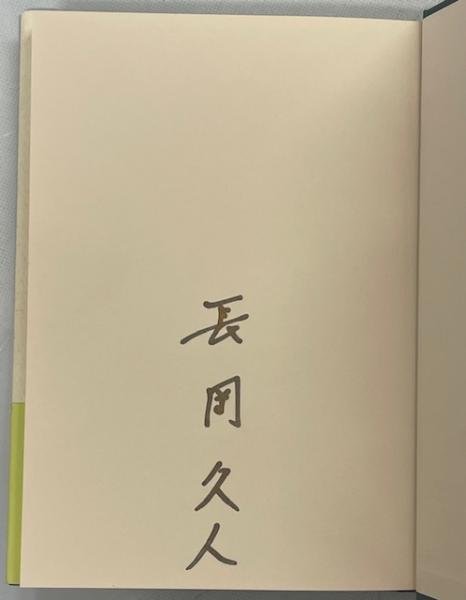 長岡久人